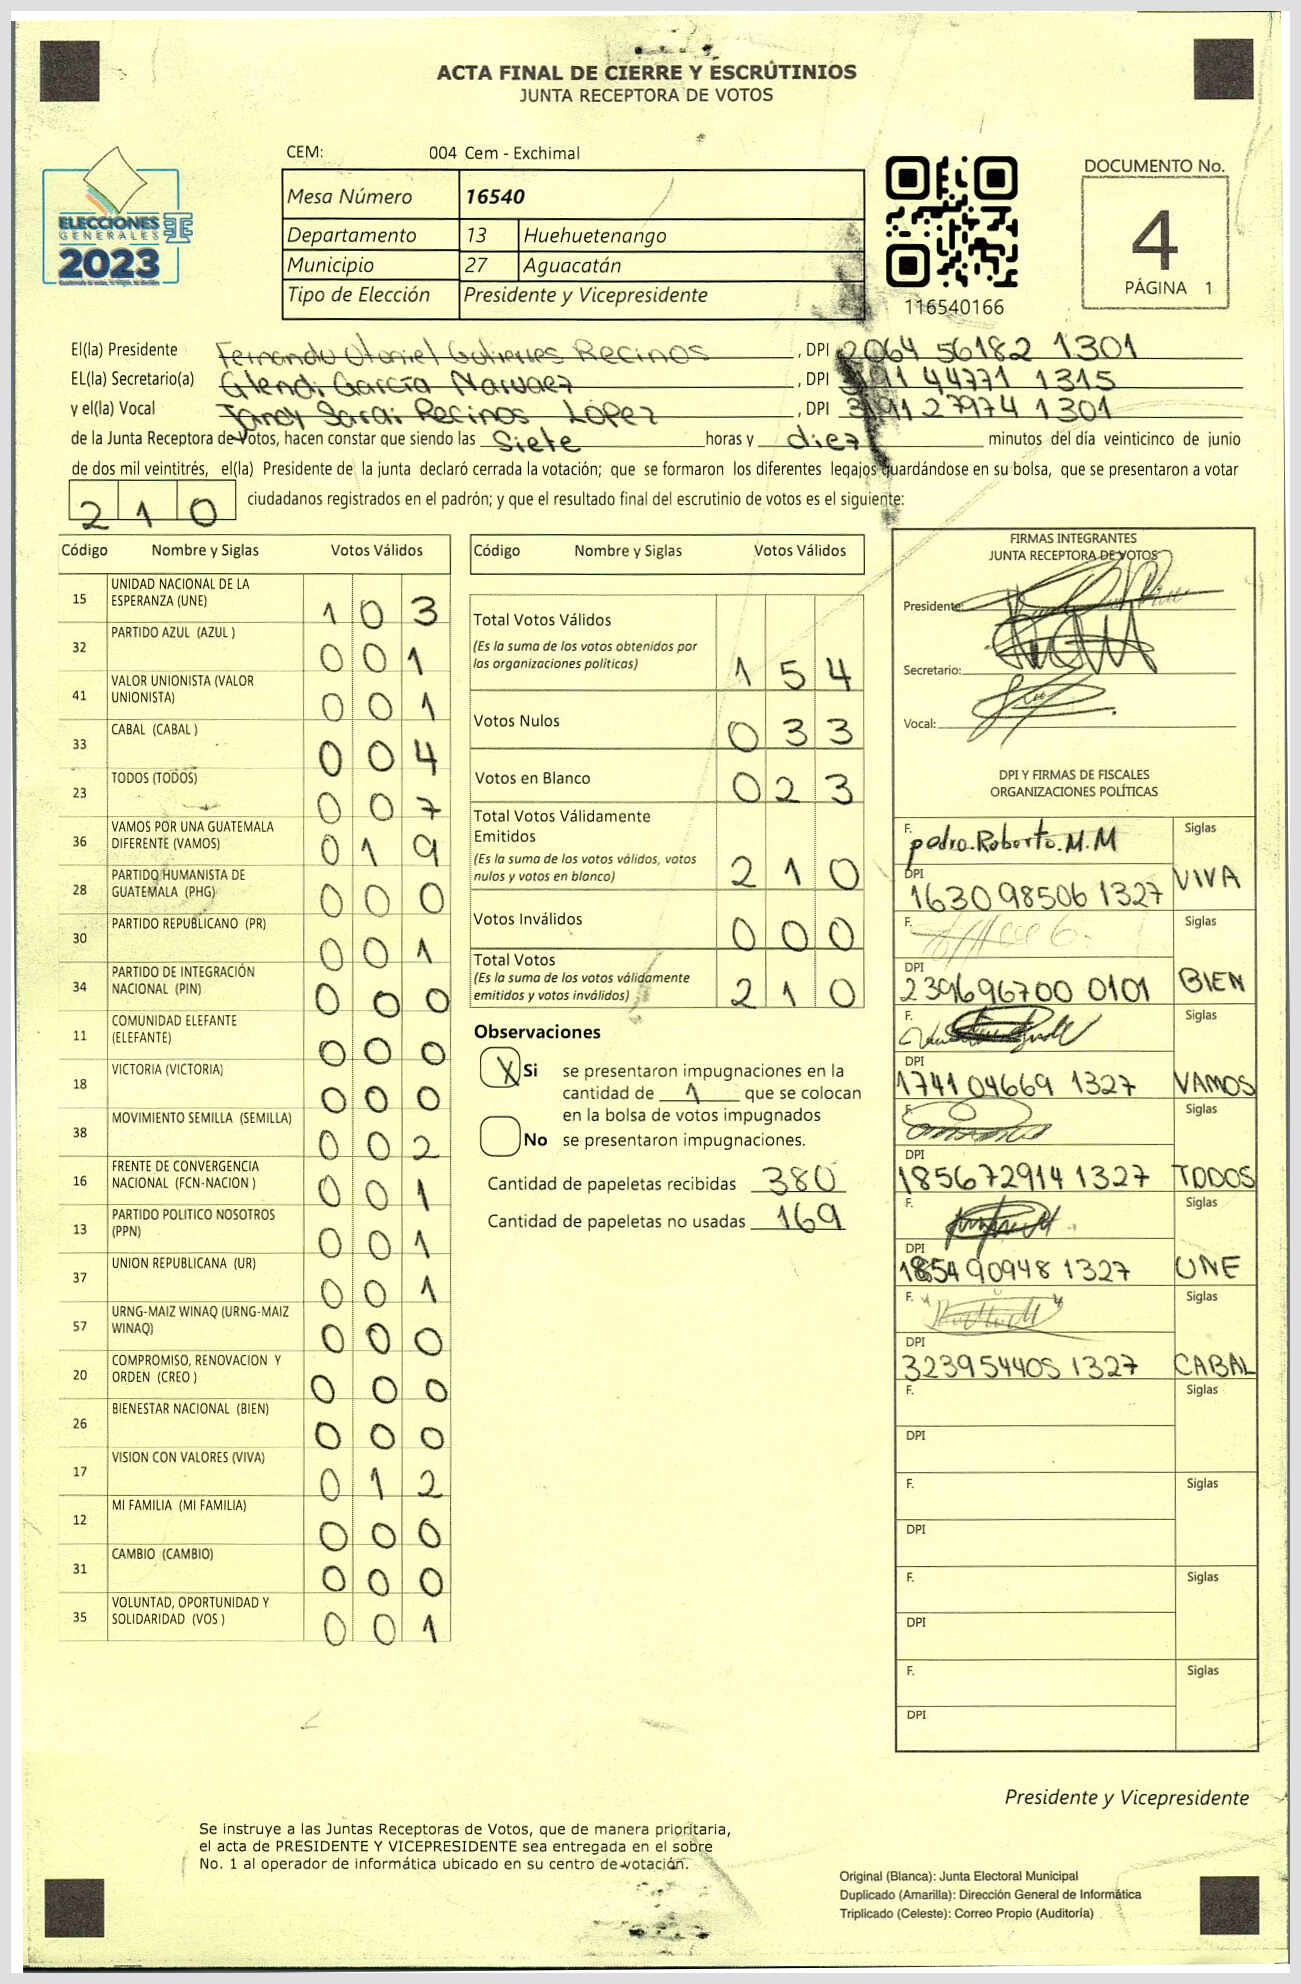 ACTA FINAL DE CIERRE Y ESCRÚTINIOS
JUNTA RECEPTORA DE VOTOS
CEM: 004 Cem - Exchimal
ELECCIONES
GENERALES
2023
Mesa Número 16540
Departamento 13 Huehuetenango
Municipio 27 Aguacatán
Tipo de Elección Presidente y Vicepresidente
116540166
DOCUMENTO No.
4
PÁGINA 1
El(la) Presidente Fernando Otoniel Gutierres Recinos, DPI 2064 56182 1301
EL(la) Secretario(a) Glendi García Narvaez, DPI 3191 44771 1315
y el(la) Vocal Jandy Sarai Recinos López, DPI 3191 27974 1301
de la Junta Receptora de Votos, hacen constar que siendo las Siete horas y diez minutos del día veinticinco de junio
de dos mil veintitrés, el(la) Presidente de la junta declaró cerrada la votación; que se formaron los diferentes legajos guardándose en su bolsa, que se presentaron a votar
210 ciudadanos registrados en el padrón; y que el resultado final del escrutinio de votos es el siguiente:
Código Nombre y Siglas Votos Válidos
15 UNIDAD NACIONAL DE LA ESPERANZA (UNE) 103
32 PARTIDO AZUL (AZUL ) 001
41 VALOR UNIONISTA (VALOR UNIONISTA) 001
33 CABAL (CABAL ) 004
23 TODOS (TODOS) 007
36 VAMOS POR UNA GUATEMALA DIFERENTE (VAMOS) 019
28 PARTIDO HUMANISTA DE GUATEMALA (PHG) 000
30 PARTIDO REPUBLICANO (PR) 001
34 PARTIDO DE INTEGRACIÓN NACIONAL (PIN) 000
11 COMUNIDAD ELEFANTE (ELEFANTE) 000
18 VICTORIA (VICTORIA) 000
38 MOVIMIENTO SEMILLA (SEMILLA) 002
16 FRENTE DE CONVERGENCIA NACIONAL (FCN-NACION ) 001
13 PARTIDO POLITICO NOSOTROS (PPN) 001
37 UNION REPUBLICANA (UR) 001
57 URNG-MAIZ WINAQ (URNG-MAIZ WINAQ) 000
20 COMPROMISO, RENOVACION Y ORDEN (CREO ) 000
26 BIENESTAR NACIONAL (BIEN) 000
17 VISION CON VALORES (VIVA) 012
12 MI FAMILIA (MI FAMILIA) 000
31 CAMBIO (CAMBIO) 000
35 VOLUNTAD, OPORTUNIDAD Y SOLIDARIDAD (VOS ) 001
Código Nombre y Siglas Votos Válidos
Total Votos Válidos
(Es la suma de los votos obtenidos por
las organizaciones políticas) 154
Votos Nulos 033
Votos en Blanco 023
Total Votos Válidamente
Emitidos
(Es la suma de los votos válidos, votos
nulos y votos en blanco) 210
Votos Inválidos 000
Total Votos
(Es la suma de los votos válidamente
emitidos y votos inválidos) 210
Observaciones
X Si se presentaron impugnaciones en la
cantidad de 1 que se colocan
en la bolsa de votos impugnados
No se presentaron impugnaciones.
Cantidad de papeletas recibidas 380
Cantidad de papeletas no usadas 169
FIRMAS INTEGRANTES
JUNTA RECEPTORA DE VOTOS
Presidente:
Secretario:
Vocal:
DPI Y FIRMAS DE FISCALES
ORGANIZACIONES POLÍTICAS
F. pedro.Roberto.M.M Siglas
DPI 1630 98506 1327 VIVA
F. Siglas
DPI 239696700 0101 BIEN
F. Siglas
DPI 1741 04669 1327 VAMOS
F. Siglas
DPI 185672914 1327 TODOS
F. Siglas
DPI 1854 90948 1327 UNE
F. Siglas
DPI 323954405 1327 CABAL
F. Siglas
DPI
F. Siglas
DPI
F. Siglas
DPI
F. Siglas
DPI
Presidente y Vicepresidente
Se instruye a las Juntas Receptoras de Votos, que de manera prioritaria,
el acta de PRESIDENTE Y VICEPRESIDENTE sea entregada en el sobre
No. 1 al operador de informática ubicado en su centro de votación.
Original (Blanca): Junta Electoral Municipal
Duplicado (Amarilla): Dirección General de Informática
Triplicado (Celeste): Correo Propio (Auditoría)